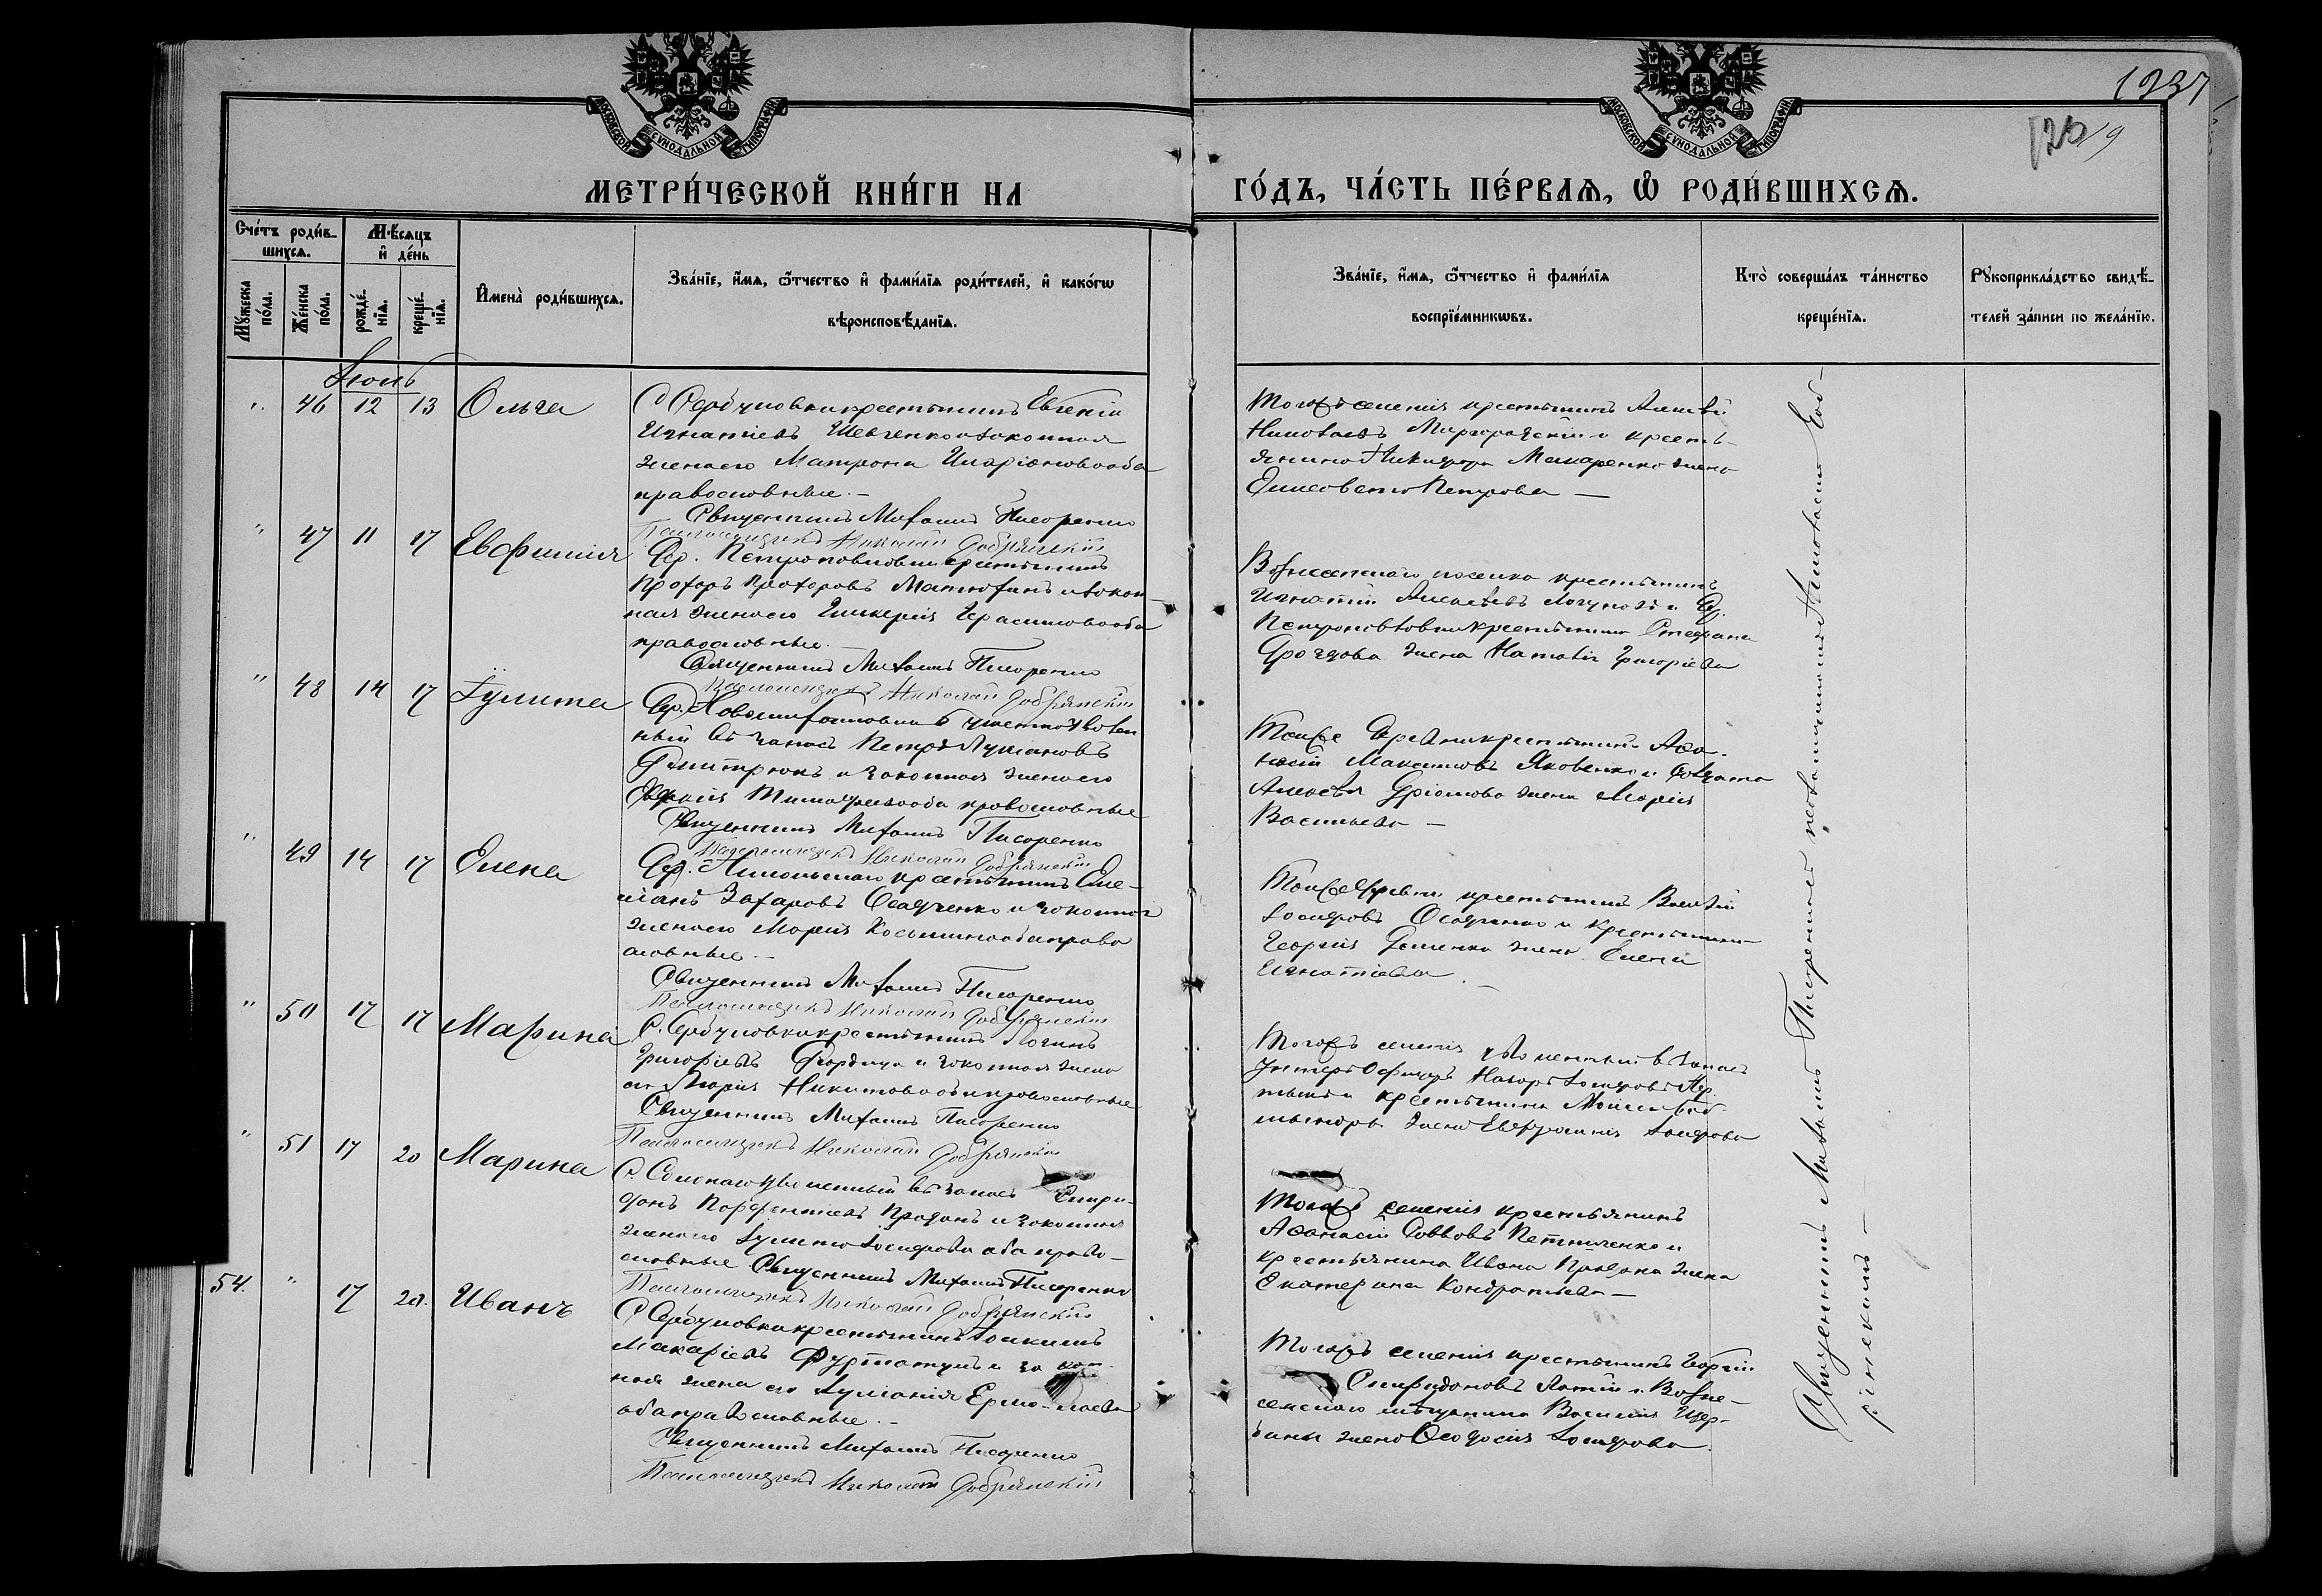 МОСКОВСКОЙ СѴНОДАЛЬНОЙ ТИПОГРАФІИ
МОСКОВСКОЙ СѴНОДАЛЬНОЙ ТИПОГРАФІИ
1237
МЕТРИ́ЧЕСКОЙ КНИ́ГИ НА
ГО́ДЪ, ЧА́СТЬ ПЕ́РВАЯ, Ѡ РОДИ́ВШИХСЯ.
Сче́тъ роди́в-
шихся.
Мѣ́сяцъ
и де́нь
Мꙋ́жеска по́ла.
Же́нска по́ла.
рожде́-нїя.
креще́-нїя.
Имена̀ роди́вшихся.
Зва́нїе, и́мя, ѻ҆́тчество и фами́лїя роди́телей, и како́гѡ
вѣроисповѣ́данїя.
Зва́нїе, и́мя, ѻ҆́тчество и фами́лїя
воспрїе́мникѡвъ.
Кто̀ соверша́лъ та́инство
креще́нїя.
Рꙋкоприкла́дство свидѣ́-
телей за́писи по жела́нїю.
Іюнь
" 46 12 13 Ольга
С Сербуловки крестьянинъ Евгеній
Игнатіевъ Шевченко и законная
жена его Матрона Иларіонова оба
православные. —
Священникъ Михаилъ Писаренко
Псаломщикъ Николай Добрянскій
Тогожъ селенія крестьянинъ Алексѣй
Николаевъ Миргородскій и кресть-
янина Никифора Макаренко жена
Елисавета Петрова —
" 47 11 17 Евфимія
Дер. Петропавловки крестьянинъ
Прохоръ Прохоровъ Матюхинъ и закон-
ная жена его Гликерія Герасимова оба
православные. —
Священникъ Михаилъ Писаренко
Псаломщикъ Николай Добрянскій
Вознесенскаго поселка крестьянинъ
Игнатій Алексѣевъ и Дер.
Петропавловки крестьянина Стефана
жена Наталія Григорієва
" 48 14 17 Іулита
Дер. Новомихайловки
ный въ запасъ Петръ Лукіановъ
Дмитрюкъ и законная жена его
Тимофеева оба православные
Священникъ Михаилъ Писаренко
Псаломщикъ Николай Добрянскій
Тойже Деревни крестьянинъ Аѳа-
насій Максимовъ Яковенко и Солдата
Алексѣя жена Марія
Васильева —
" 49 14 17 Елена
Дер. Никольскаго крестьянинъ Еме-
ліанъ Захаровъ Осадченко и законная
жена его Марія Косьмина оба право
славные. —
Священникъ Михаилъ Писаренко
Псаломщикъ Николай Добрянскій
Тойже Деревни крестьянинъ Василій
Іосифовъ Осадченко и крестьянина
Георгія жена Елена
Игнатіева —
" 50 17 17 Марина
С. Сербуловки крестьянинъ Логинъ
Григоріевъ и законная жена
его Марія Никитова оба православные
Священникъ Михаилъ Писаренко
Псаломщикъ Николай Добрянскій
Тогожъ селенія уволенный въ запасъ
Унтеръ Офицеръ Назаръ Іосифовъ
и крестьянина Моисея
жена Евфросинія Іосифова
" 51 17 20 Марина
С. уволенный въ запасъ Спири-
донъ Парфентіевъ Проданъ и законная
жена его Іулита Іосифова оба право-
славные Священникъ Михаилъ Писаренко
Псаломщикъ Николай Добрянскій
Тогожъ селенія крестьянинъ
Аѳанасій Саввовъ Петриченко и
крестьянина Ивана Продана жена
Екатерина Кондратьева —
54. " 17 20. Иванъ
С Сербуловки крестьянинъ Іоакимъ
Макаріевъ и закон-
ная жена его Іуліанія Ермолаева
оба православные. —
Священникъ Михаилъ Писаренко
Псаломщикъ Николай Добрянскій
Тогожъ селенія крестьянинъ Георгій
Спиридоновъ и Возне-
сенскаго мѣщанина Василія Щер-
бины жена Ѳеодосія Іосифова
Священникъ Михаилъ Писаренко съ псаломщикомъ Николаемъ Доб-
рянскимъ —